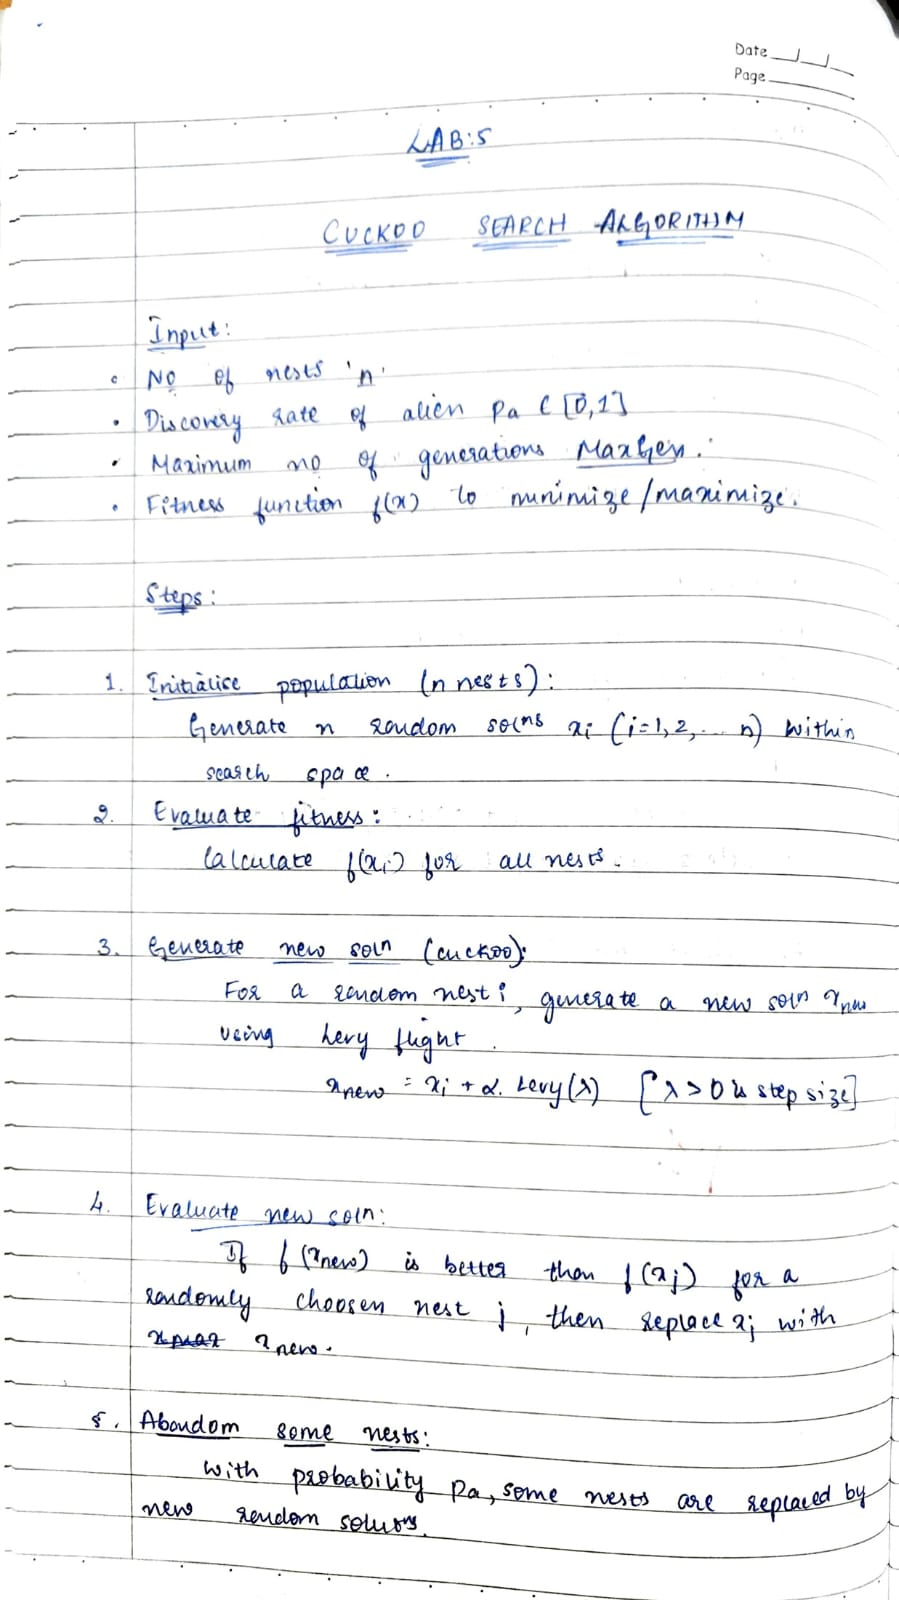 Date
Page
LAB:5
CUCKOO SEARCH ALGORITHM
Input:
• No of nests 'n'
• Discovery rate of alien Pa ∈ [0,1]
• Maximum no of generations MaxGen.
• Fitness function f(x) to minimize/maximize.
Steps:
1. Initialise population (n nests):
Generate n random solns xi (i=1,2,... n) within
search space.
2. Evaluate fitness:
Calculate f(xi) for all nests.
3. Generate new soln (cuckoo):
For a random nest i, generate a new soln xnew
using Levy flight.
xnew = xi + α. Levy(λ) [λ>0 is step size]
4. Evaluate new soln:
If f(xnew) is better than f(xj) for a
randomly choosen nest j, then replace xj with
xnew.
5. Abandom some nests:
with probability Pa, some nests are replaced by
new random solutns.